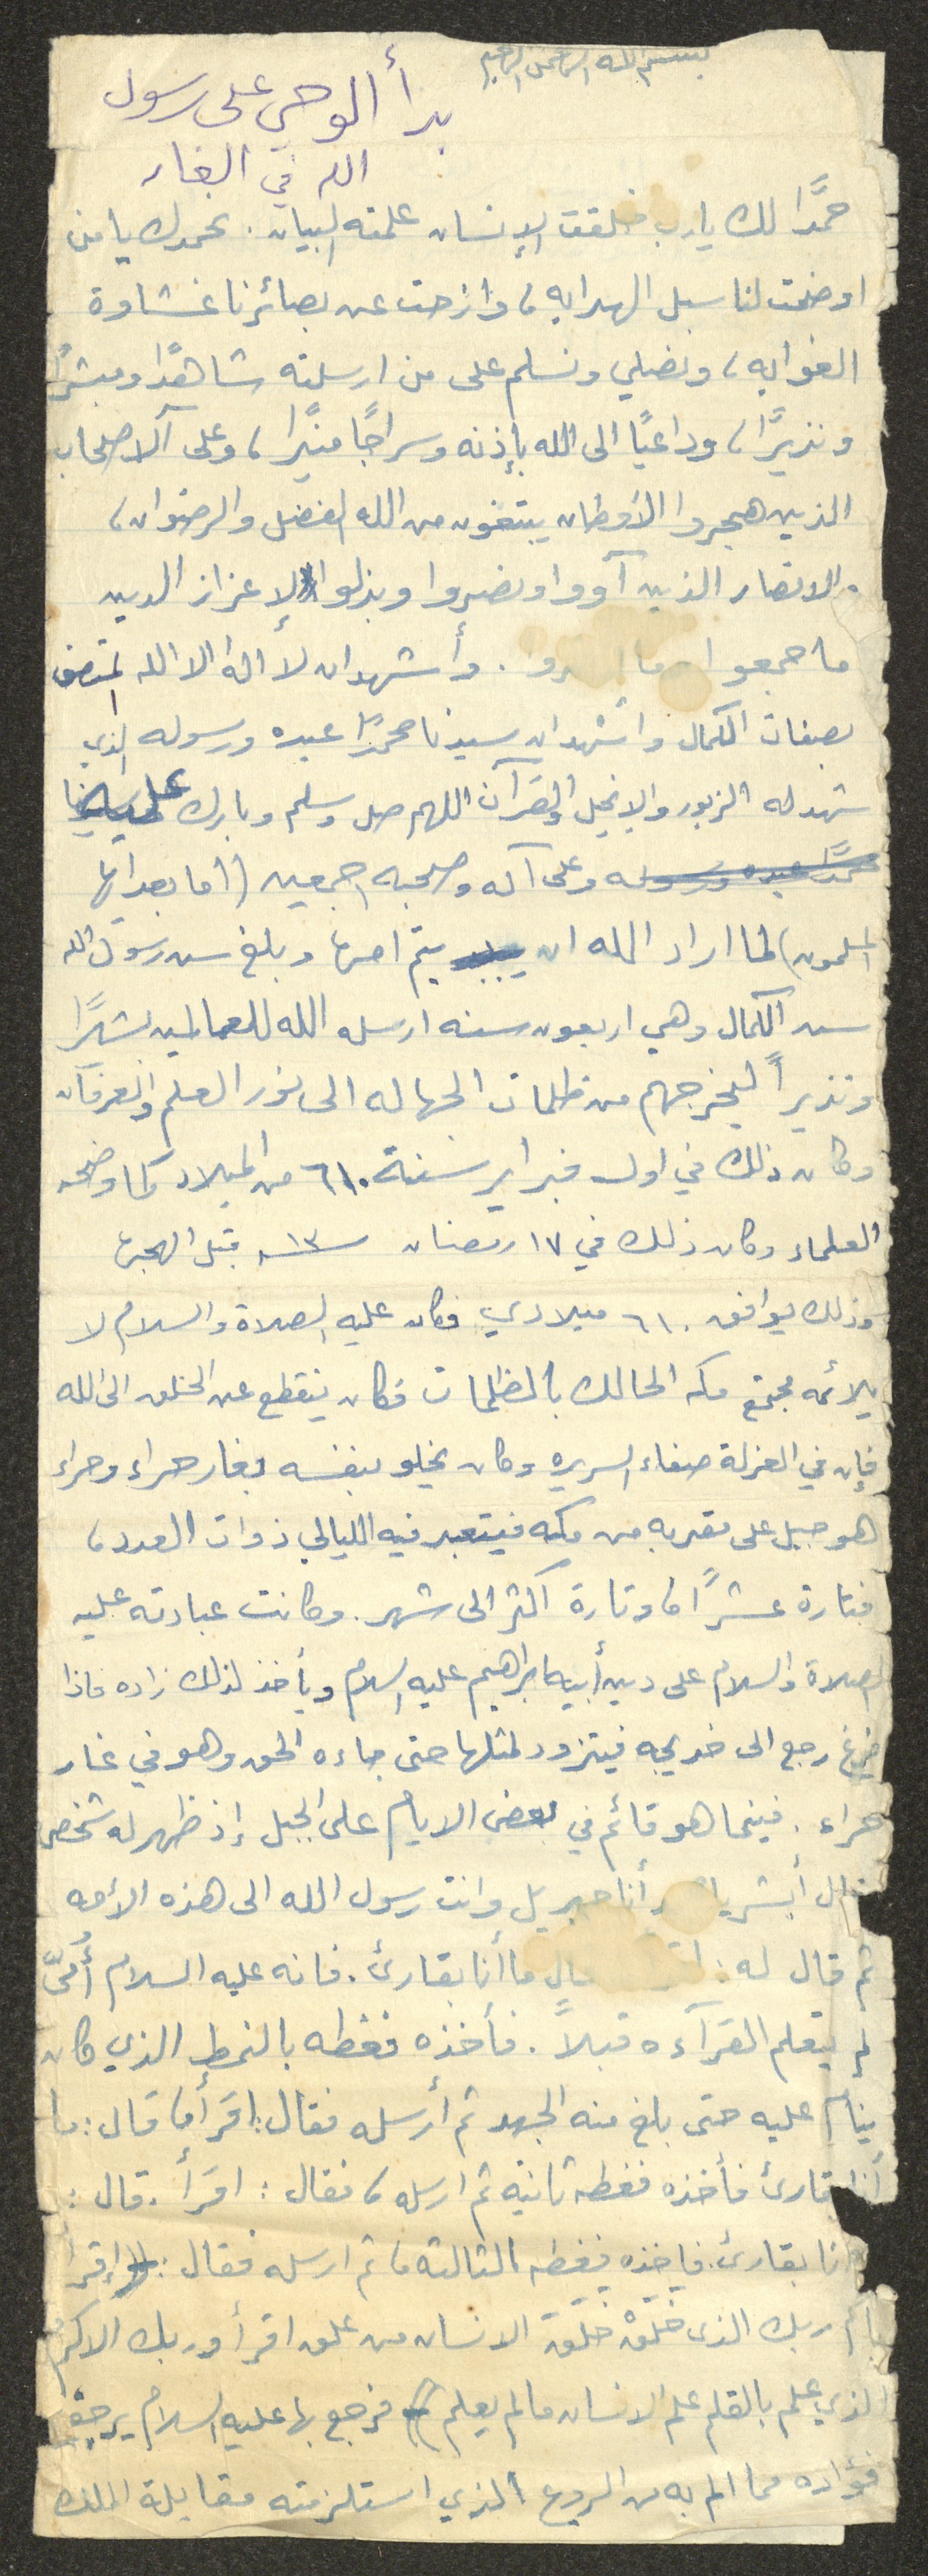 بسم الله الرحمن الرحيم
بدأ الوحي على رسول
الله في الغار
حمدًا لك يارب خلقت الإنسان علمته البيان. نحمدك يا من
اوضحت لنا سبل الهدايه، وازحت عن بصائرنا غشاوة
الغوايه، ونصلي ونسلم على من ارسلته شاهدًا ومبشرًا
ونذيرًا، وداعيًا الى الله بإذنه وسراجًا منيرًا، وعلى آلا صحاب
الذين هجروا الأوطان يبتغون من الله الفضل والرضوان،
والانصار الذين آووا ونصروا وبذلوا لإعزاز الدين
ما جمعوا وما. وأشهد ان لا اله الا الله المتصف
بصفات الكمال واشهد ان سيدنا محمدًا عبده ورسوله الذي
شهد له الزبور والانجيل والقرآن اللهم صل وسلم وبارك عليه
محمدًا عبده ورسوله وعلى آله وصحبه اجمعين (اما بعد ايها
المسلمون) لما اراد الله ان يتم امرها وبلغ سن رسول الله
سن الكمال وهي اربعون سنه ارسله الله للعالمين بشيرًا
ونذيراً ليخرجهم من ظلمات الجهاله الى نور العلم والعرفان
وكان ذلك في اول فبراير سنة ٦١٠ من الميلاد كما وضحه
العلماء وكان ذلك في ١٧ رمضان ١٣ قبل الهجره
وذلك يوافق ٦١٠ ميلادي فكان عليه الصلاة والسلام لا
يلائمه مجتمع مكه الحالك بالظلمات فكان ينقطع عن الخلق الى الله
فإن في العزلة صفاء السريره وكان يخلو بنفسه بغار حراء وحراء
هو جبل على مقربه من مكه فيتعبد فيه الليالي ذوات العدد،
فتارة عشرًا، وتارة اكثر الى شهر. وكانت عبادته عليه
الصلاة والسلام على دين أبيه ابراهيم عليه السلام ويأخذ لذلك زاده فاذا
فرغ رجع الى خديجه فيتزود لمثلها حتى جاءه الحق وهو في غار
حراء. فبينما هو قائم في بعض الايام على الجبل إذ ظهر له شخص
فقال أبشر يا أنا جبريل وانت رسول الله الى هذه الأمه
ثم قال له: قال ما أنا بقارئ. فانه عليه السلام أُمّيّ
لم يتعلم القرآءه قبلاً. فأخذه فغطه بالنمط الذي كان
ينام عليه حتى بلغ منه الجهد ثم أرسله فقال: اقرأ، قال: ما
أنا بقارئ فأخذه فغطه ثانيه ثم ارسله، فقال: اقرأ. قال:
انا بقارئ. فاخذه فغطه الثالثه، ثم ارسله فقال: إقرأ
باسم ربك الذى خلقْ خلق الانسان من علق اقرأ وربك الاكرم
الذي علم بالقلم علم الانسان مالم يعلم فرجع بها عليه السلام يرجف
فؤاده مما الم به من الروع الذي استلزمته مقابلة الملك